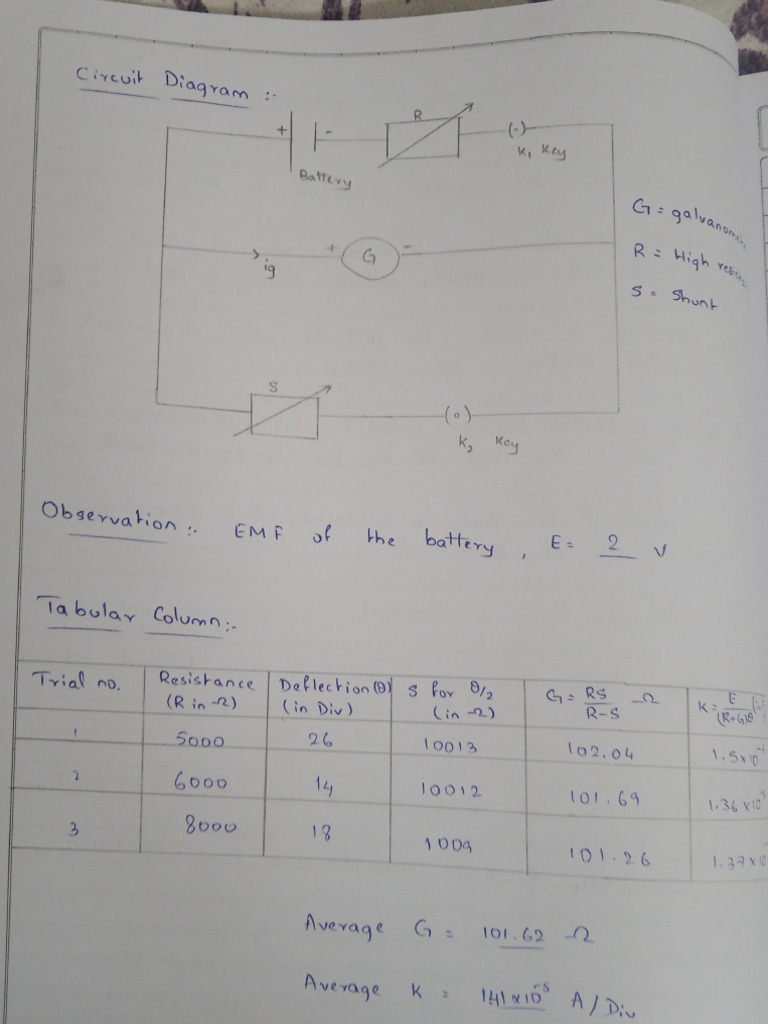 Circuit Diagram :-
+ - R (·)
K₁ Key
Battery
G = galvanom
R = High resis
S = Shunt
ig + G -
S (o)
K₂ Key
Observation :- EMF of the battery , E = 2 V
Tabular Column :-
Trial no. Resistance (R in Ω) Deflection (θ) (in Div) S for θ/2 (in Ω) G = RS/R-S Ω K = E/(R+G)θ
1 5000 26 10013 102.04 1.5x10
2 6000 14 10012 101.69 1.36x10
3 8000 18 1009 101.26 1.37x10
Average G = 101.62 Ω
Average K = 141x10⁻⁵ A/Div